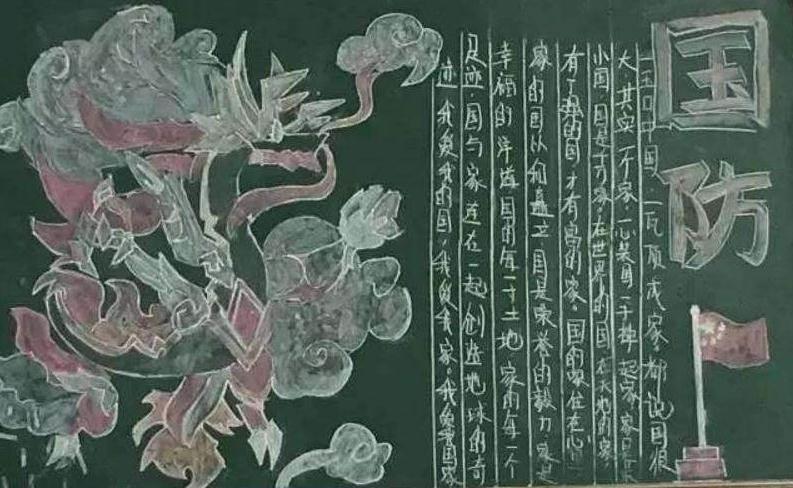 国防
一玉口中国,一瓦顶成家,都说国很
大,其实一个家,一心装一手撑起家家是
小国国是千万家,在世界的国在天地的家,
有了强的国才有富的家。国的家住在心
家的国以和矗立国是荣誉的毅力,家是
幸福的洋溢国的每一寸土地家的每一个
足迹国与家连在一起创造地球的奇
迹我爱我的国,我爱我家。我爱国家